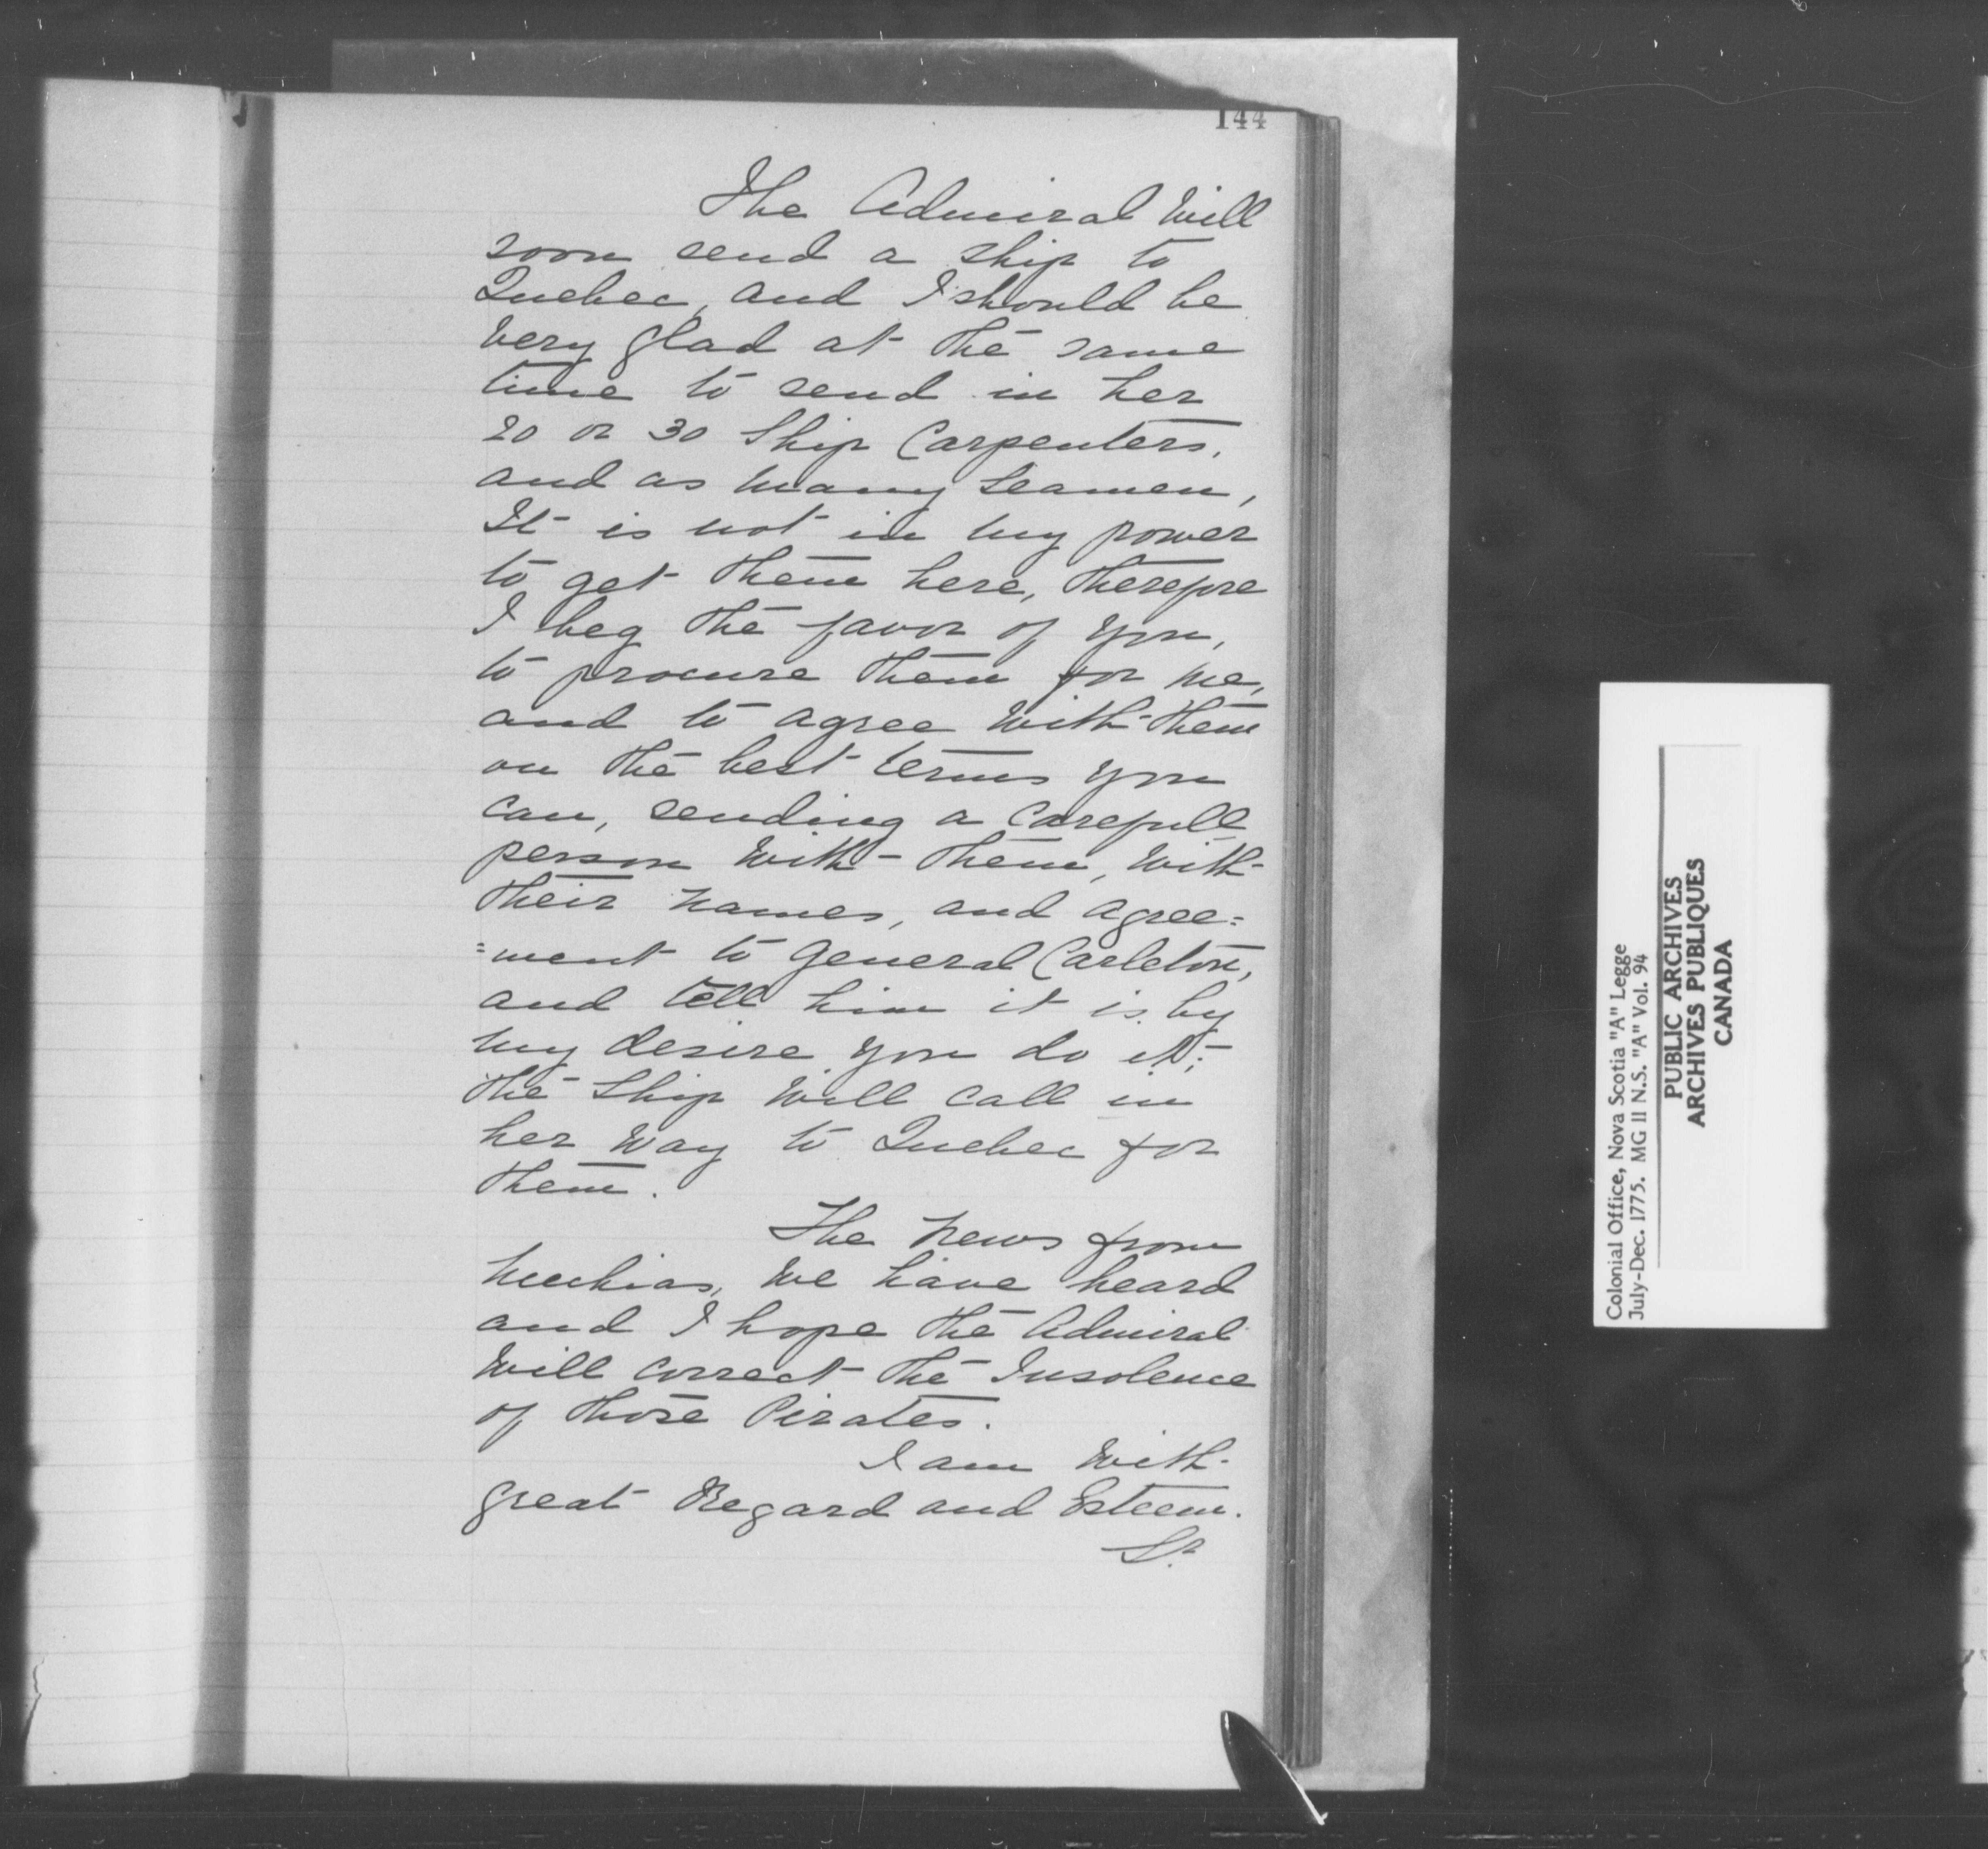 144
The Admiral will
soon send a ship to
Quebec, and I should be
very glad at the same
time to send in her
20 or 30 Ship Carpenters,
and as many Seamen,
It is not in my power
to get them here, therefore
I beg the favor of you,
to procure them for me,
and to agree with them
on the best terms you
can, sending a Carefull
person with them, with
their names, and agree=
=ment to General Carleton,
and tell him it is by
my desire you do it;
the Ship will call in
her way to Quebec for
them.
The news from
we have heard
and I hope the Admiral
will correct the Insolence
of those Pirates.
I am with
great Regard and Esteem.
Sr
Colonial Office, Nova Scotia "A" Legge
July-Dec. 1775. MG 11 N.S. "A" Vol. 94
PUBLIC ARCHIVES
ARCHIVES PUBLIQUES
CANADA